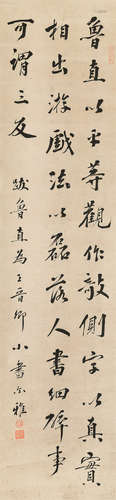 魯直以平等觀作欹側字以真實
相出游戲法以磊落人書細碎事
可謂三反 跋魯直為王晉卿小書爾雅